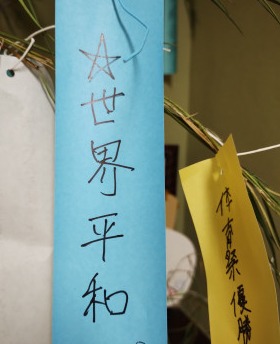 ☆世界平和
体育祭優勝